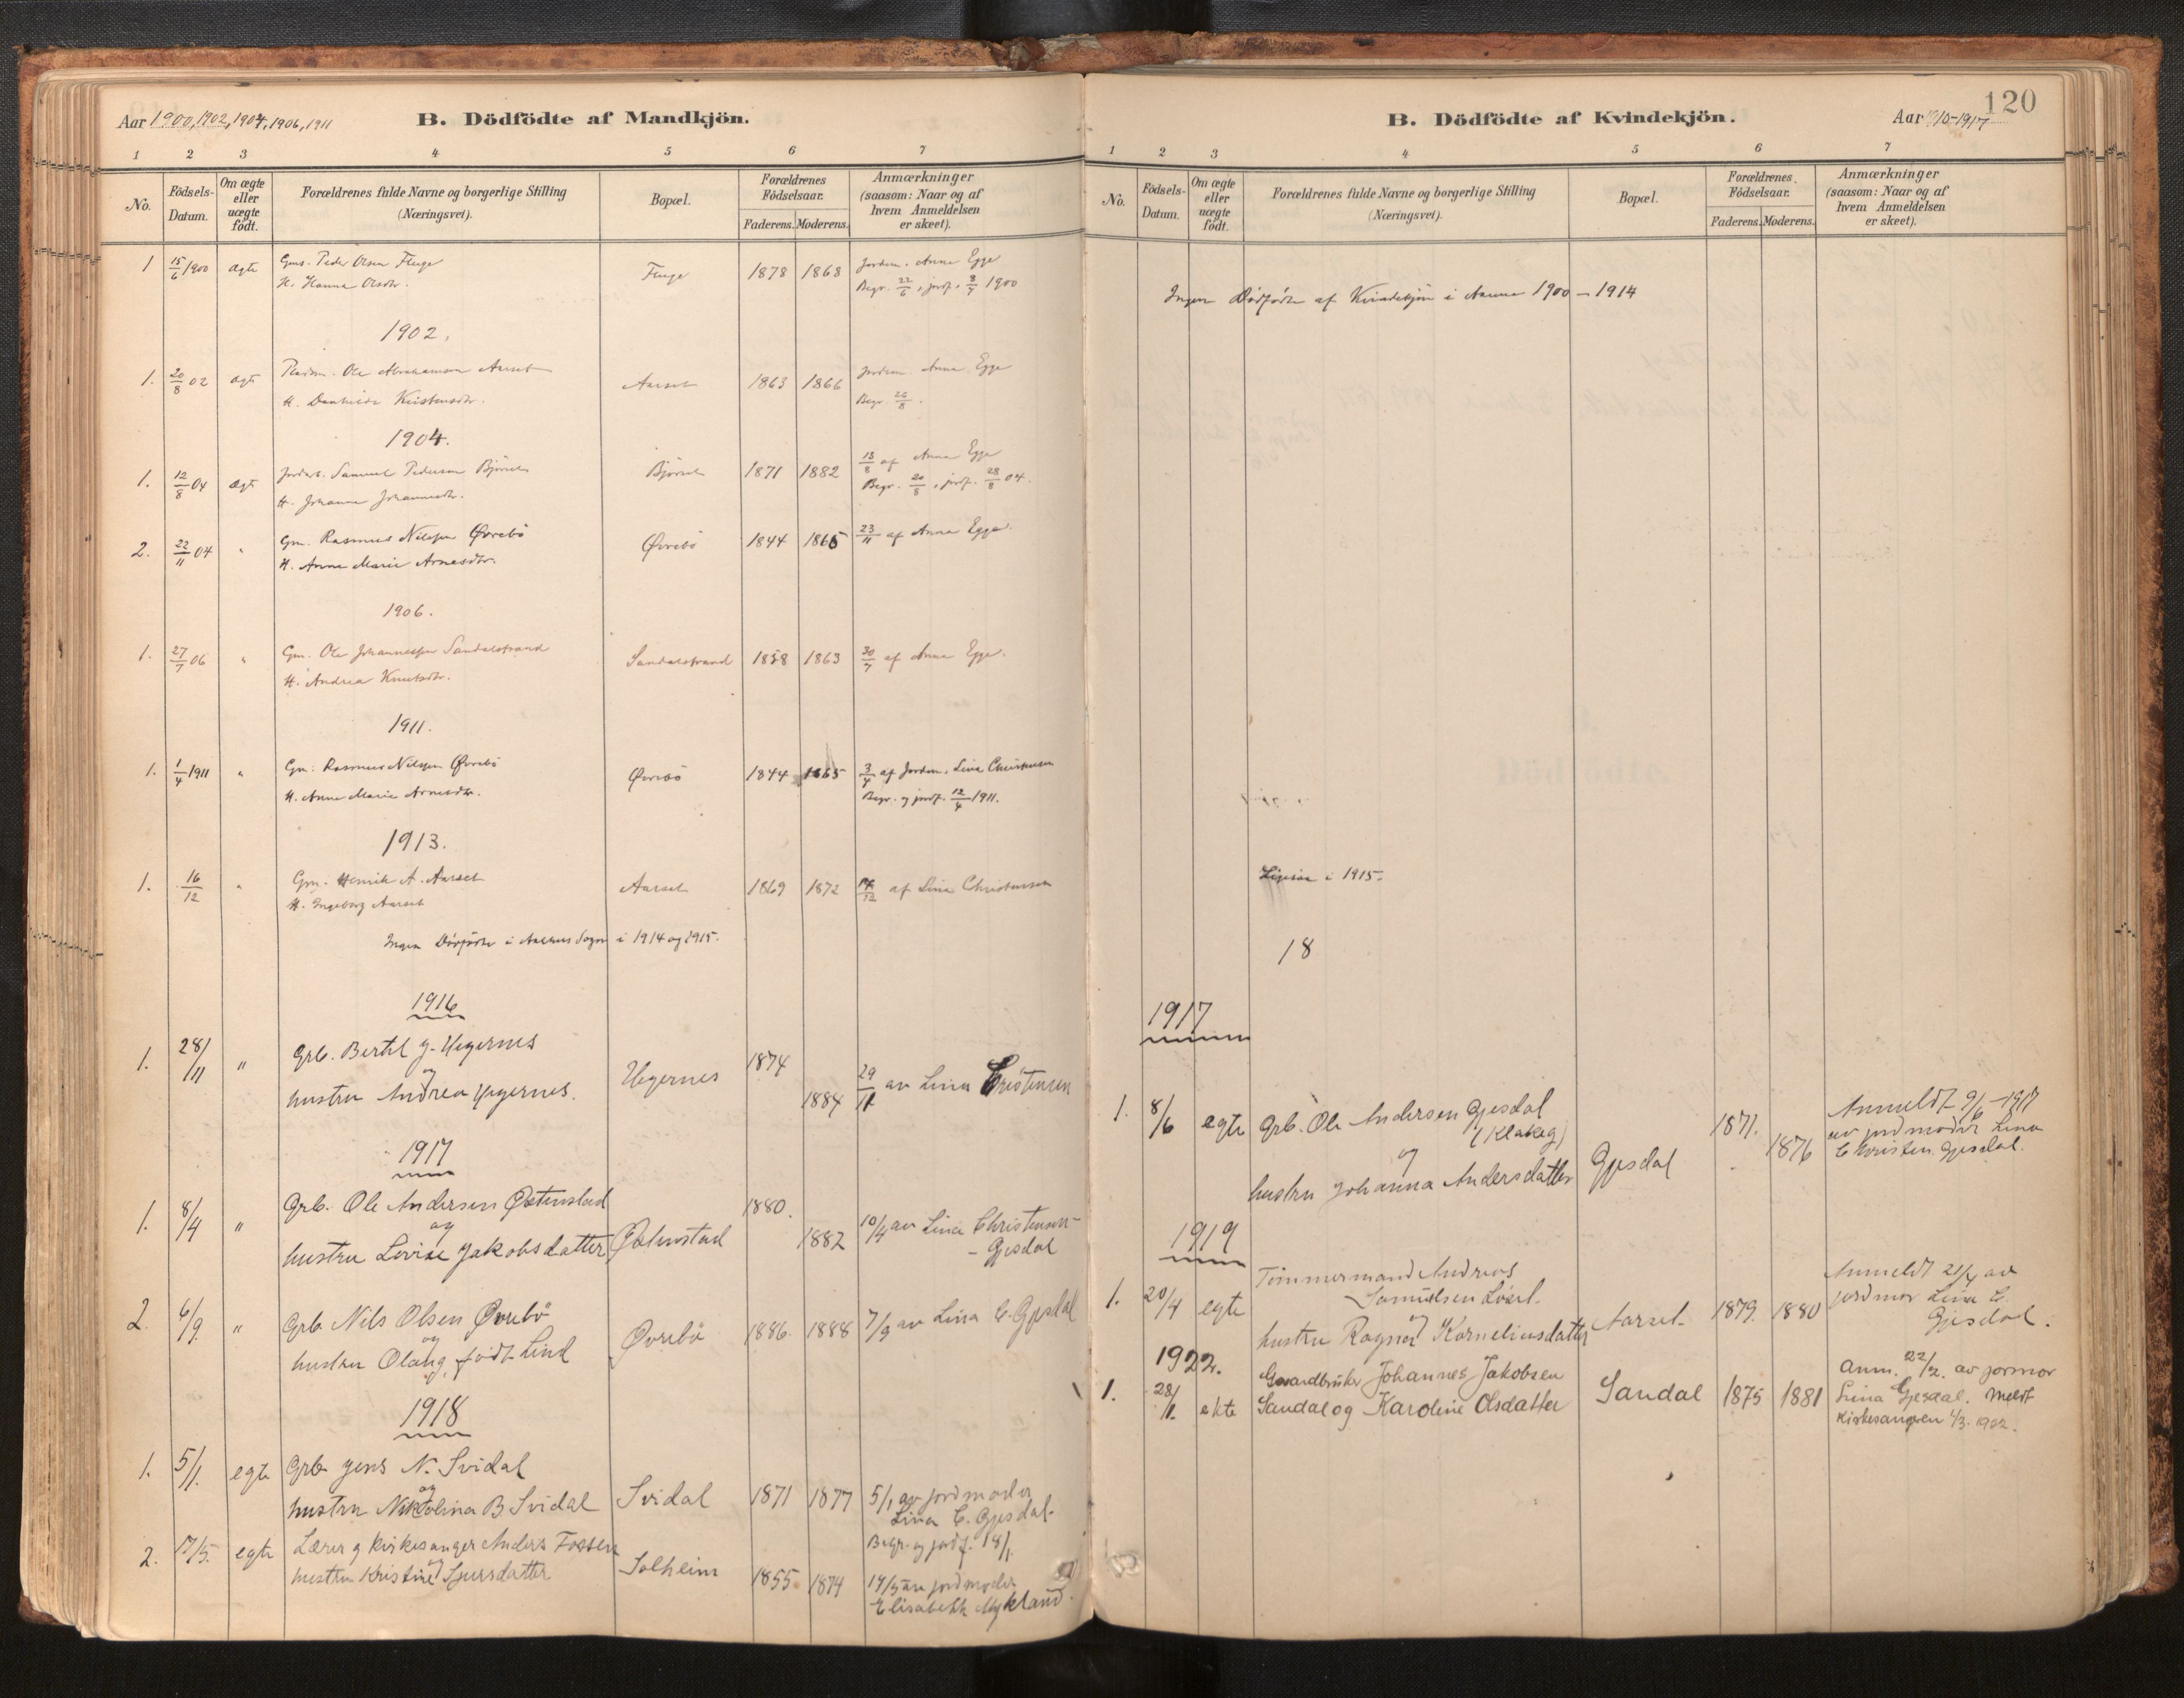 Aar 1900, 1902, 1904, 1906, 1911
B. Dödfödte af Mandkjön.
1 2 3 4 5 6 7
No.
Födsels-Datum.
Om ægte eller uægte födt.
Forældrenes fulde Navne og borgerlige Stilling (Næringsvei).
Bopæl.
Forældrenes Födselsaar.
Faderens. Moderens.
Anmærkninger (saasom: Naar og af hvem Anmeldelsen er skeet).
1 15/6 1900 ægte Gms. Peder Olsen Fluge Fluge 1878 1868 Jordm. Anna Egge
H. Hanna Olsdtr. Begr. 22/6, jordf. 8/7 1900
1902.
1. 20/8 02 ægte Ole Abrahamsen Aarset Aarset 1863 1866 Jordem. Anna Egge
H. Kristensdtr. Begr. 26/8.
1904.
1. 12/8 04 ægte Samuel Pedersen Björset Björset 1871 1882 13/8 af Anna Egge
H. Johanne Johannesdtr. Begr. 20/8, jordf. 28/8 04.
2. 22/11 04 " Gm. Rasmus Nilssen Øvrebö Øvrebö 1844 1865 23/11 af Anna Egge.
H. Anne Marie Arnesdtr.
1906.
1. 27/7 06 " Gm. Ole Johannessen Sandalstrand Sandalstrand 1858 1863 30/7 af Anna Egge.
H. Andrea Knutsdtr.
1911.
1. 1/4 1911 " Gm. Rasmus Nilssen Øvrebö Øvrebö 1844 1865 3/4 af Jordm. Lina Christensen
H. Anne Marie Arnesdtr. Begr. og jordf. 12/4 1911.
1913.
1. 16/12 " Gm. Henrik A. Aarset Aarset 1869 1872 af Lina Christensen
H. Ingeborg Aarset
Ingen Dödfödte i Sogn i 1914 og 1915.
1916
1. 28/11 " Grb. Bertel J. Hegernes Hegernes 1874
og
hustru Andrea Hegernes. 1884 29/11 av Lina Cristensen
1917
1. 8/4 " Grb. Ole Andersen Østenstad 1880.
og
hustru Lovise Jakobsdatter Østenstad 1882 10/4 av Lina Christensen-
- Gjesdal
2. 6/9. " Grb. Nils Olsen Øvrebö Øvrebö 1886. 1888 7/9 av Lina C. Gjesdal
og
hustru Olaug, født Lind
1918
1. 5/1. egte Grb. Jens N. Svidal
og
hustru Nikolina B. Svidal Svidal 1871 1877 5/1 av jordmoder
Lina C. Gjesdal.
Begr. og jordf. 14/1.
2. 17/5. egte Lærer og kirkesanger Anders Fossen
og
hustru Kristine Sjursdatter Solheim 1855 1874 av jordmoder
Elisabeth Mykland.
120
B. Dödfödte af Kvindekjön.
Aar 1910-1917
1 2 3 4 5 6 7
No.
Födsels-Datum.
Om ægte eller uægte födt.
Forældrenes fulde Navne og borgerlige Stilling (Næringsvei).
Bopæl.
Forældrenes Födselsaar.
Faderens. Moderens.
Anmærkninger (saasom: Naar og af hvem Anmeldelsen er skeet).
Ingen Dödfödte af Kvindekjön i Aarene 1900 - 1914
Ligesaa i 1915.
18
1917
1. 8/6 egte Grb. Ole Andersen Gjesdal 1871. Anmeldt 9/6-1917
(Klakeg) av jordmoder Lina
og 1876 Christen. Gjesdal.
hustru Johanna Andersdatter Gjesdal
1919
1. 20/4 egte Tömmermand Andreas Anmeldt 21/4 av
Samuelsen Löset. jordmor Lina C.
og Gjesdal.
hustru Ragna Korneliusdatter Aarset 1879. 1880
1922.
1. 28/1. ekte Gaardbruker Johannes Jakobsen Anm. 22/2. av jormor
Sandal og Karoline Olsdatter Sandal 1875 1881 Lina Gjesdal. Meldt
Kirkesangeren 1/3. 1922.